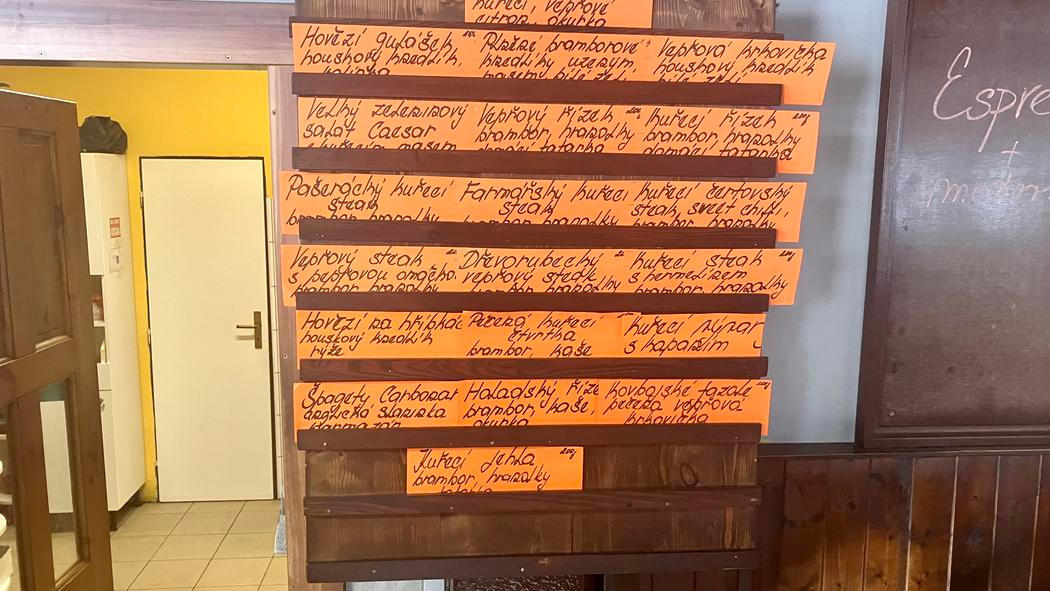 kuřecí, vepřové
citron, okurka
Hovězí gulášek
houskový knedlík,
Plněné bramborové
knedlíky uzeným,
Vepřová krkovička
houskový knedlík
Velký zeleninový
salát Caesar
s kuřecím masem
Vepřový řízek
brambor, hranolky
domácí tatarka
kuřecí řízek
brambor, hranolky
domácí tatarka
Pašerácký kuřecí
steak
brambor, hranolky
Farmářský kuřecí
steak
brambor, hranolky
kuřecí čertovský
steak, sweet chilli,
brambor, hranolky
Vepřový steak
s pepřovou omáčko
brambor, hranolky
Dřevorubecký
vepřový steak
brambor, hranolky
kuřecí steak
s hermelínem
brambor, hranolky
Hovězí na hříbkác
houskový knedlík
rýže
Pečená kuřecí
čtvrtka
brambor, kaše
kuřecí nýzar
s kapařím
Špagety Carbonar
anglická slanina
parmazán
Holandský říze
brambor, kaše,
okurka
Kovbojské fazole
pečená vepřová
krkovička
Kuřecí Jehla
brambor, hranolky
tatarka
Espre
+